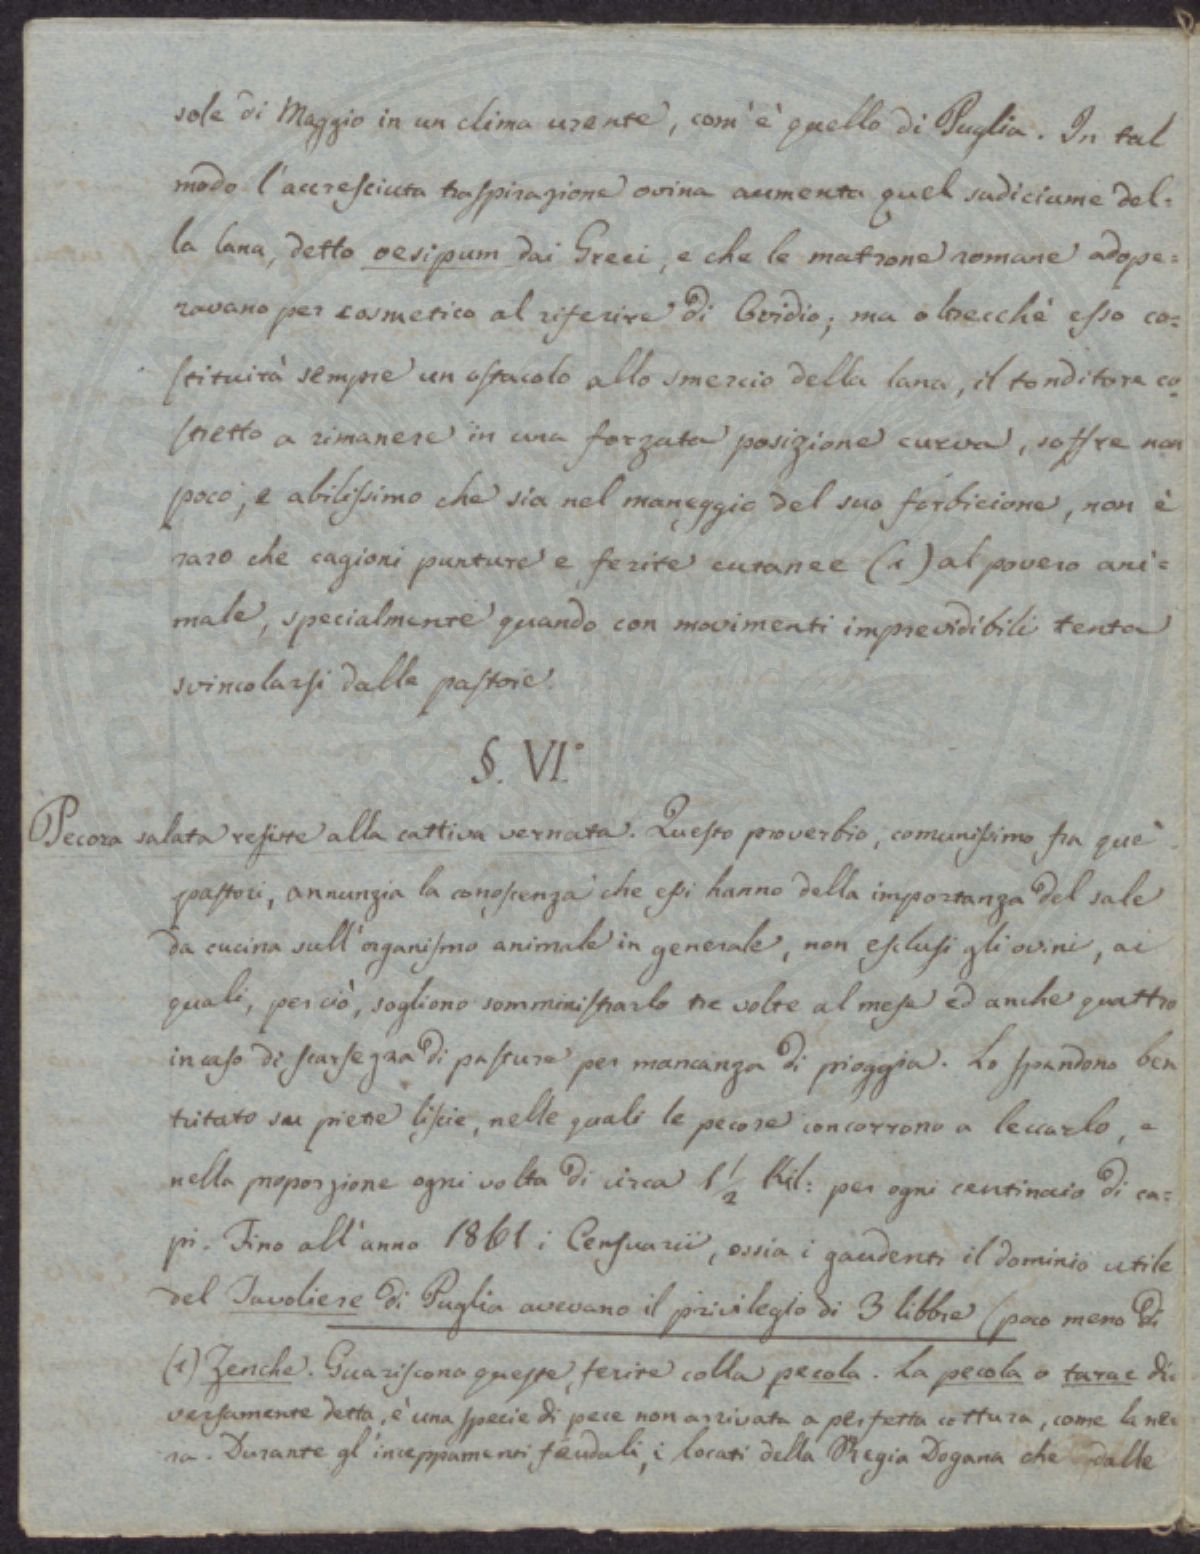 sole di Maggio in un clima urente, com'è quello di Puglia. In tal
modo l'accresciuta traspirazione ovina aumenta quel sudiciume del=
la lana, detto oesipum dai Greci, e che le matrone romane adope=
ravano per cosmetico al riferire di Ovidio; ma oltrecchè esso co=
stituirà sempre un ostacolo allo smercio della lana, il tonditore co
stretto a rimanere in una forzata posizione curva, soffre non
poco, e abilissimo che sia nel maneggio del suo forbicione, non è
raro che cagioni punture e ferite cutanee (1) al povero ani=
male, specialmente quando con movimenti imprevidibili tenta
svincolarsi dalle pastoie.
§. VI.°
Pecora salata resiste alla cattiva vernata. Questo proverbio, comunissimo fra que'
pastori, annunzia la conoscenza che essi hanno della importanza del sale
da cucina sull'organismo animale in generale, non esclusi gli ovini, ai
quali, perciò, sogliono somministrarlo tre volte al mese ed anche quattro
in caso di scarsezza di pasture per mancanza di pioggia. Lo spandono ben
tritato su pietre liscie, nelle quali le pecore concorrono a leccarlo, e
nella proporzione ogni volta di circa 1 1/2 Kil: per ogni centinaio di ca=
pi. Fino all'anno 1861 i Censuarii, ossia i gaudenti il dominio utile
del Tavoliere di Puglia avevano il privilegio di 3 libbre (poco meno di
(1) Zenche. Guariscono queste ferite colla pecola. La pecola o tarae di
versamente detta, è una specie di pece non arrivata a perfetta cottura, come la ne
ra. Durante gl'inceppamenti feudali, i locati della Regia Dogana che dalle